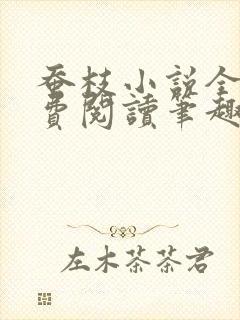 蚕枝小说全
費閱讀筆趣
左木茶茶君